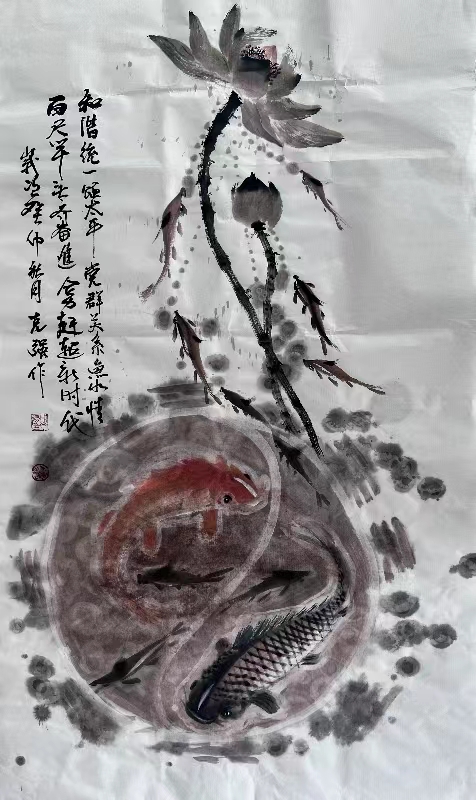 和谐统一颂太平 党群关系鱼水情
百尺竿头齐奋进 奋赶超新时代
岁次癸卯秋月 克强作